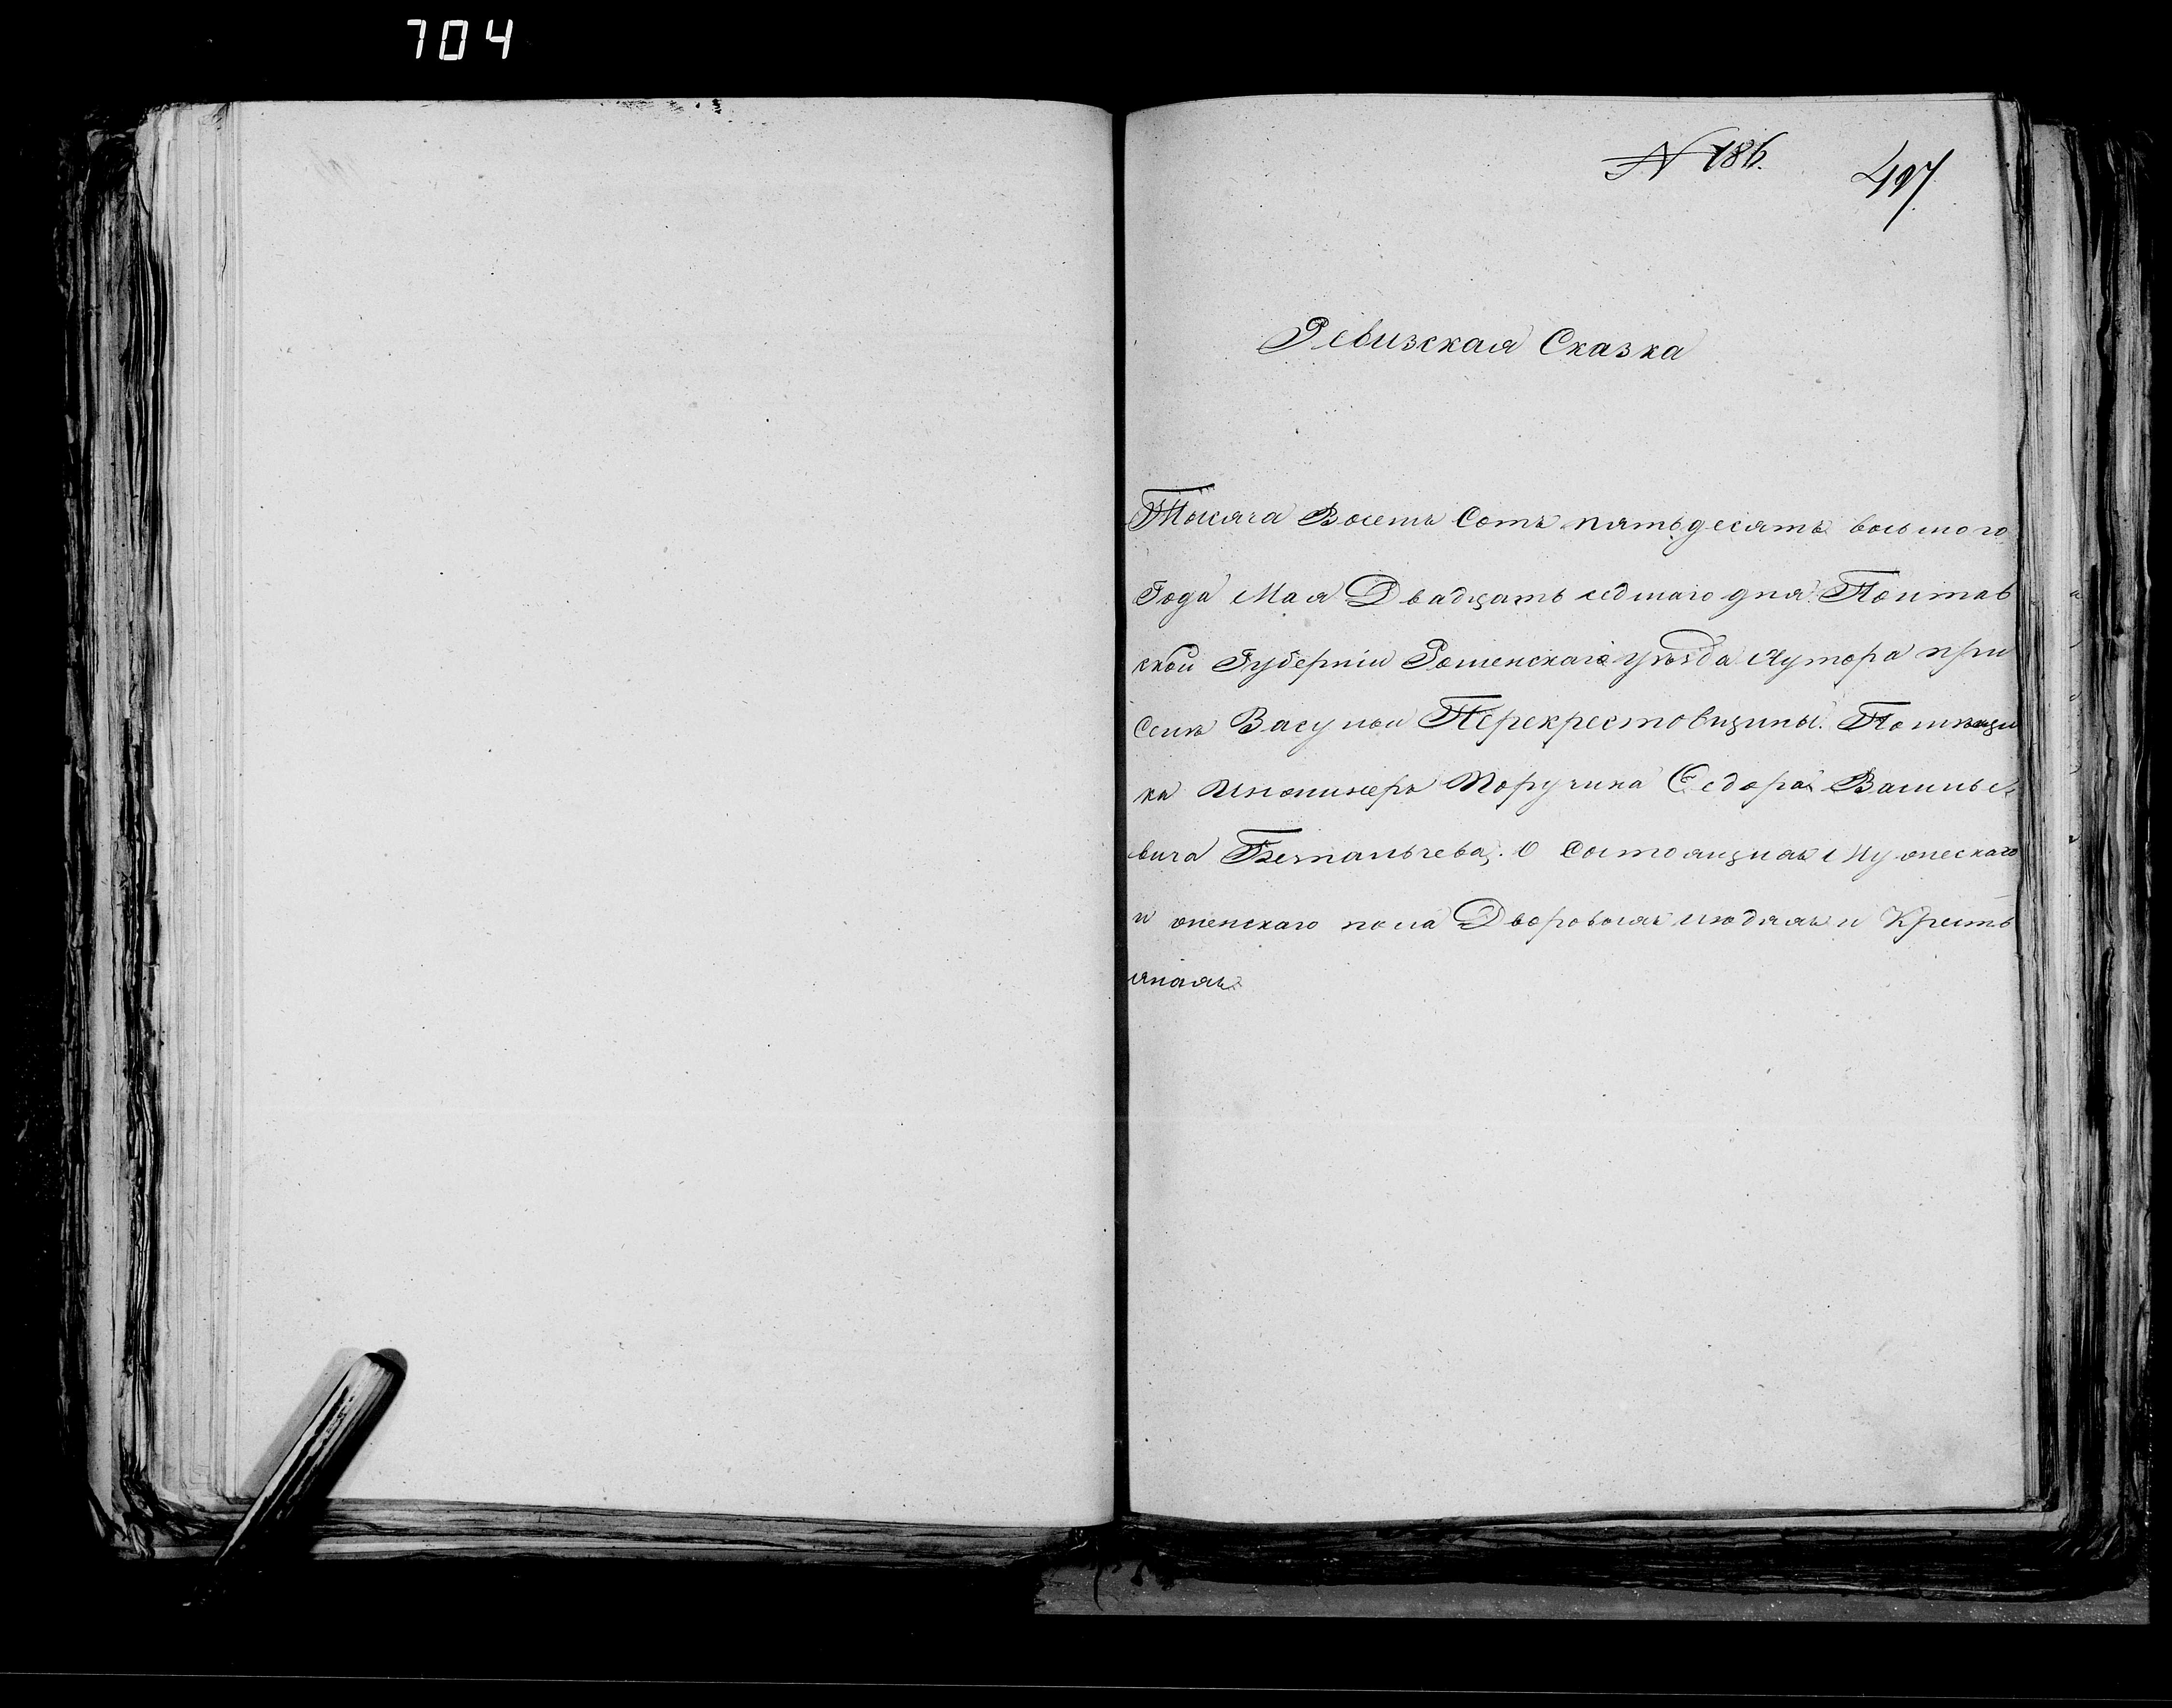 704
N 186.
497
Ревизская Сказка
Тысяча Восемь Сотъ пятьдесятъ восьмого
Года Мая Двадцать седмаго дня. Полтав
ской Губерніи Роменскаго уѣзда Хутора при
Селѣ Басулки Перекрестовщины. Помѣщи
ка Инжинеръ Поручика Федора Василье
вича О состоящихъ Мужескаго
и женскаго пола Дворовыхъ людяхъ и Кресть
янахъ